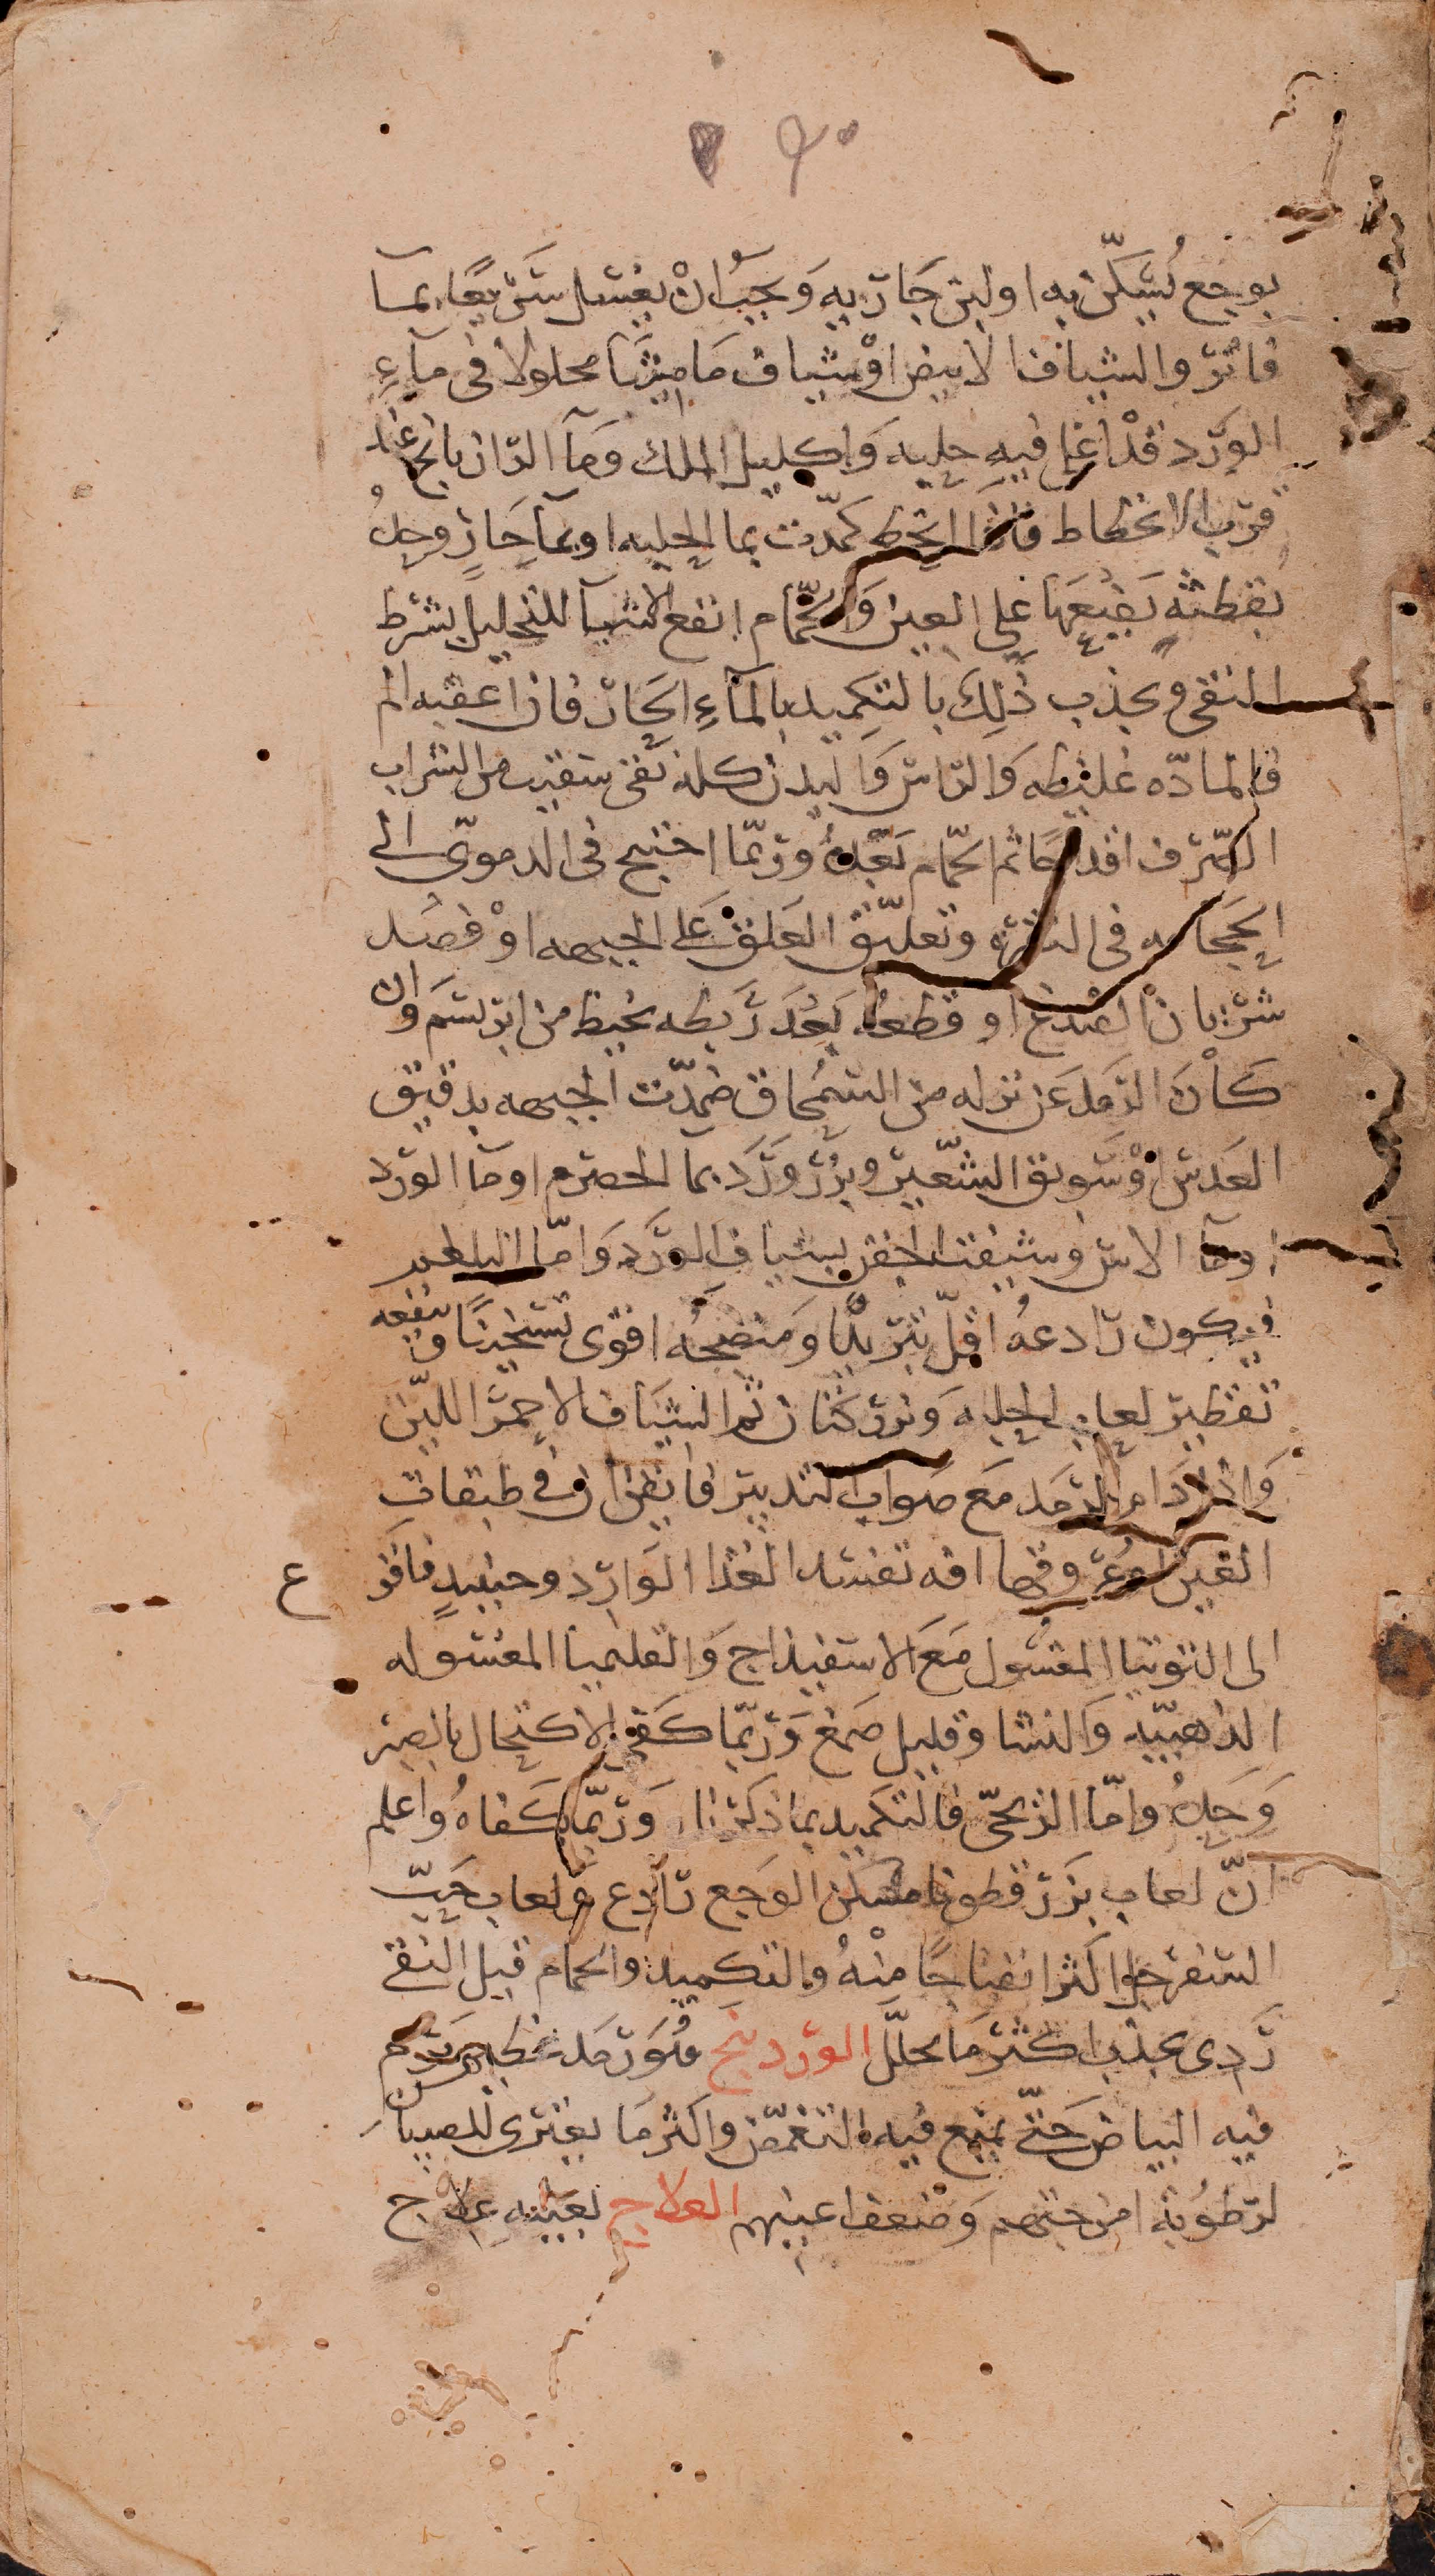 ٩٠
بوجع يُسَكّن به او لبن جَاريه وَيجبُ انْ يغسل سَريعًا بمـآ
فاتر والشياف الابيض اوْ شياف مَاميثَا محلولا فى مآءِ
الورد قدْ اغلى فيه حلبه وَاكليل الملك وَمآ الرازيانج عند
قرب الانحطاط فاذا انحط كمّدت بمآ الحلبه او بمآ حَارٍ وحدهُ
بقطنه يَضعَهَا على العين وَالحمّام انفع الاشيآ للتحليل بشرط
النقى ويجذب ذٰلِكَ بالتكميد بالمآءِ الحَار فان اعقبه الم
فالمادّه غليظه وَالراس وَالبدن كله نقى سقيت من الشراب
الصّرف اقداحًا ثم الحمّام بَعْدهُ وربّما احتيج فى الدموىّ الى
الحجامه فى النقره وتعليق العَلق عَلى الجبهه اوْ فصَد
شريان الصدغ او قطعه بَعْدَ رَبطه بخيط من ابريسَم وان
كَانَ الرمَد عَن نزله من السمْحاق ضمدّت الجبهه بدقيق
العَدس اوْ سَويق الشعّير وبزر وَرَد بمآ الحصرم او مآ الورد
او مآ الاس وشيفت الجفن بشياف الوَرَد وَامّا البلغمى
فيكون رَادعهُ اقلّ تبريدًا وَمنضجهُ اقوى تسخينًا وينفعه
تقطير لعاب الحلبه وَبزر كتان ثم الشيَاف الاحمر اللّين
وَاذا دَام الرمَد مَع صَواب التدبير فايقن ان فى طبقات
العين او عروقها افه تفسد الغذا الوَارد وحينيذٍ فافزع
الى التوتيا المغسُول مَع الاسفيذاج وَالقليميا المغسوله
الذهبيّه وَالنشا وقليل صَمغ وَربّما كَفى الاكتحال بالصبر
وَحَدهُ وامّا الريحىّ فالتكميد بما ذكرنا وَربّما كفاهُ واعلم
انّ لعاب بزر قطونا مسكن الوَجع رَادع وَلعاب حَبّ
السفرجل اكثر انضاجًا مِنْهُ والتكميد والحمام قبل النقى
رَدى يجذب اكثر مَا يحلّل الوردينج هُوَ رَمَد عظيم يَرم
فيه البياض حَتّى يمنع فيه التغمّض واكثر مَا يعترى للصبيان
لرطوُبة امزجتهم وَضعف اعينهم العلاج بعَينه علاج